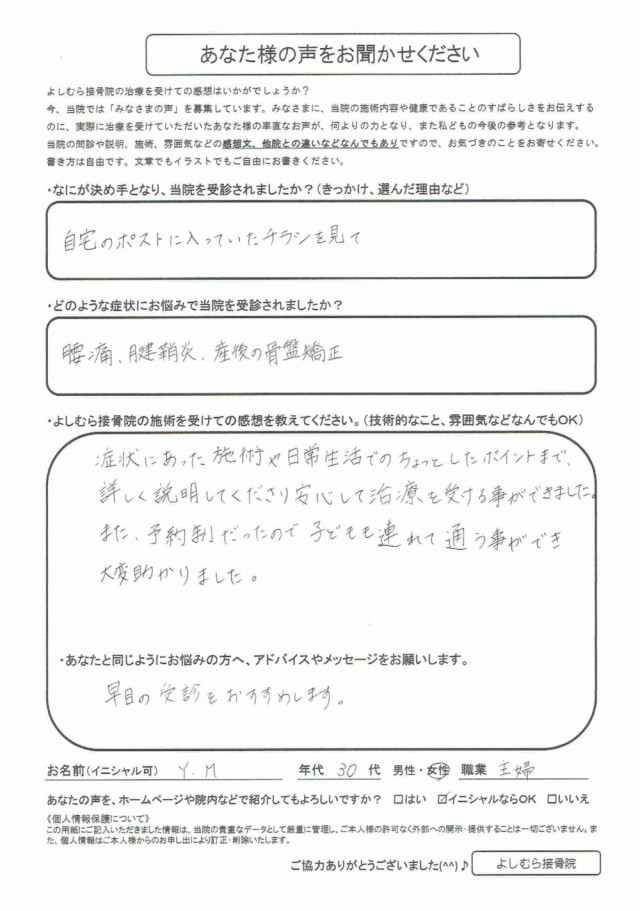 あなた様の声をお聞かせください
よしむら接骨院の治療を受けての感想はいかがでしょうか？
今、当院では「みなさまの声」を募集しています。みなさまに、当院の施術内容や健康であることのすばらしさをお伝えする
のに、実際に治療を受けていただいたあなた様の率直なお声が、何よりの力となり、また私どもの今後の参考となります。
当院の問診や説明、施術、雰囲気などの感想文、他院との違いなどなんでもありですので、お気づきのことをお寄せください。
書き方は自由です。文章でもイラストでもご自由にお書きください。
・なにが決め手となり、当院を受診されましたか？（きっかけ、選んだ理由など）
自宅のポストに入っていたチラシを見て
・どのような症状にお悩みで当院を受診されましたか？
腰痛、腱鞘炎、産後の骨盤矯正
・よしむら接骨院の施術を受けての感想を教えてください。（技術的なこと、雰囲気などなんでもOK）
症状にあった施術や日常生活でのちょっとしたポイントまで、
詳しく説明してくださり安心して治療を受ける事ができました。
また、予約制だったので子どもも連れて通う事ができ
大変助かりました。
・あなたと同じようにお悩みの方へ、アドバイスやメッセージをお願いします。
早目の受診をおすすめします。
お名前（イニシャル可） Y.M 年代 30 代 男性・女性 職業 主婦
あなたの声を、ホームページや院内などで紹介してもよろしいですか？ □はい ☑イニシャルならOK □いいえ
《個人情報保護について》
この用紙にご記入いただきました情報は、当院の貴重なデータとして厳重に管理し、ご本人様の許可なく外部への開示・提供することは一切ございません。ま
た、個人情報はご本人様からのお申し出により訂正・削除いたします。
ご協力ありがとうございました(^^)♪ よしむら接骨院